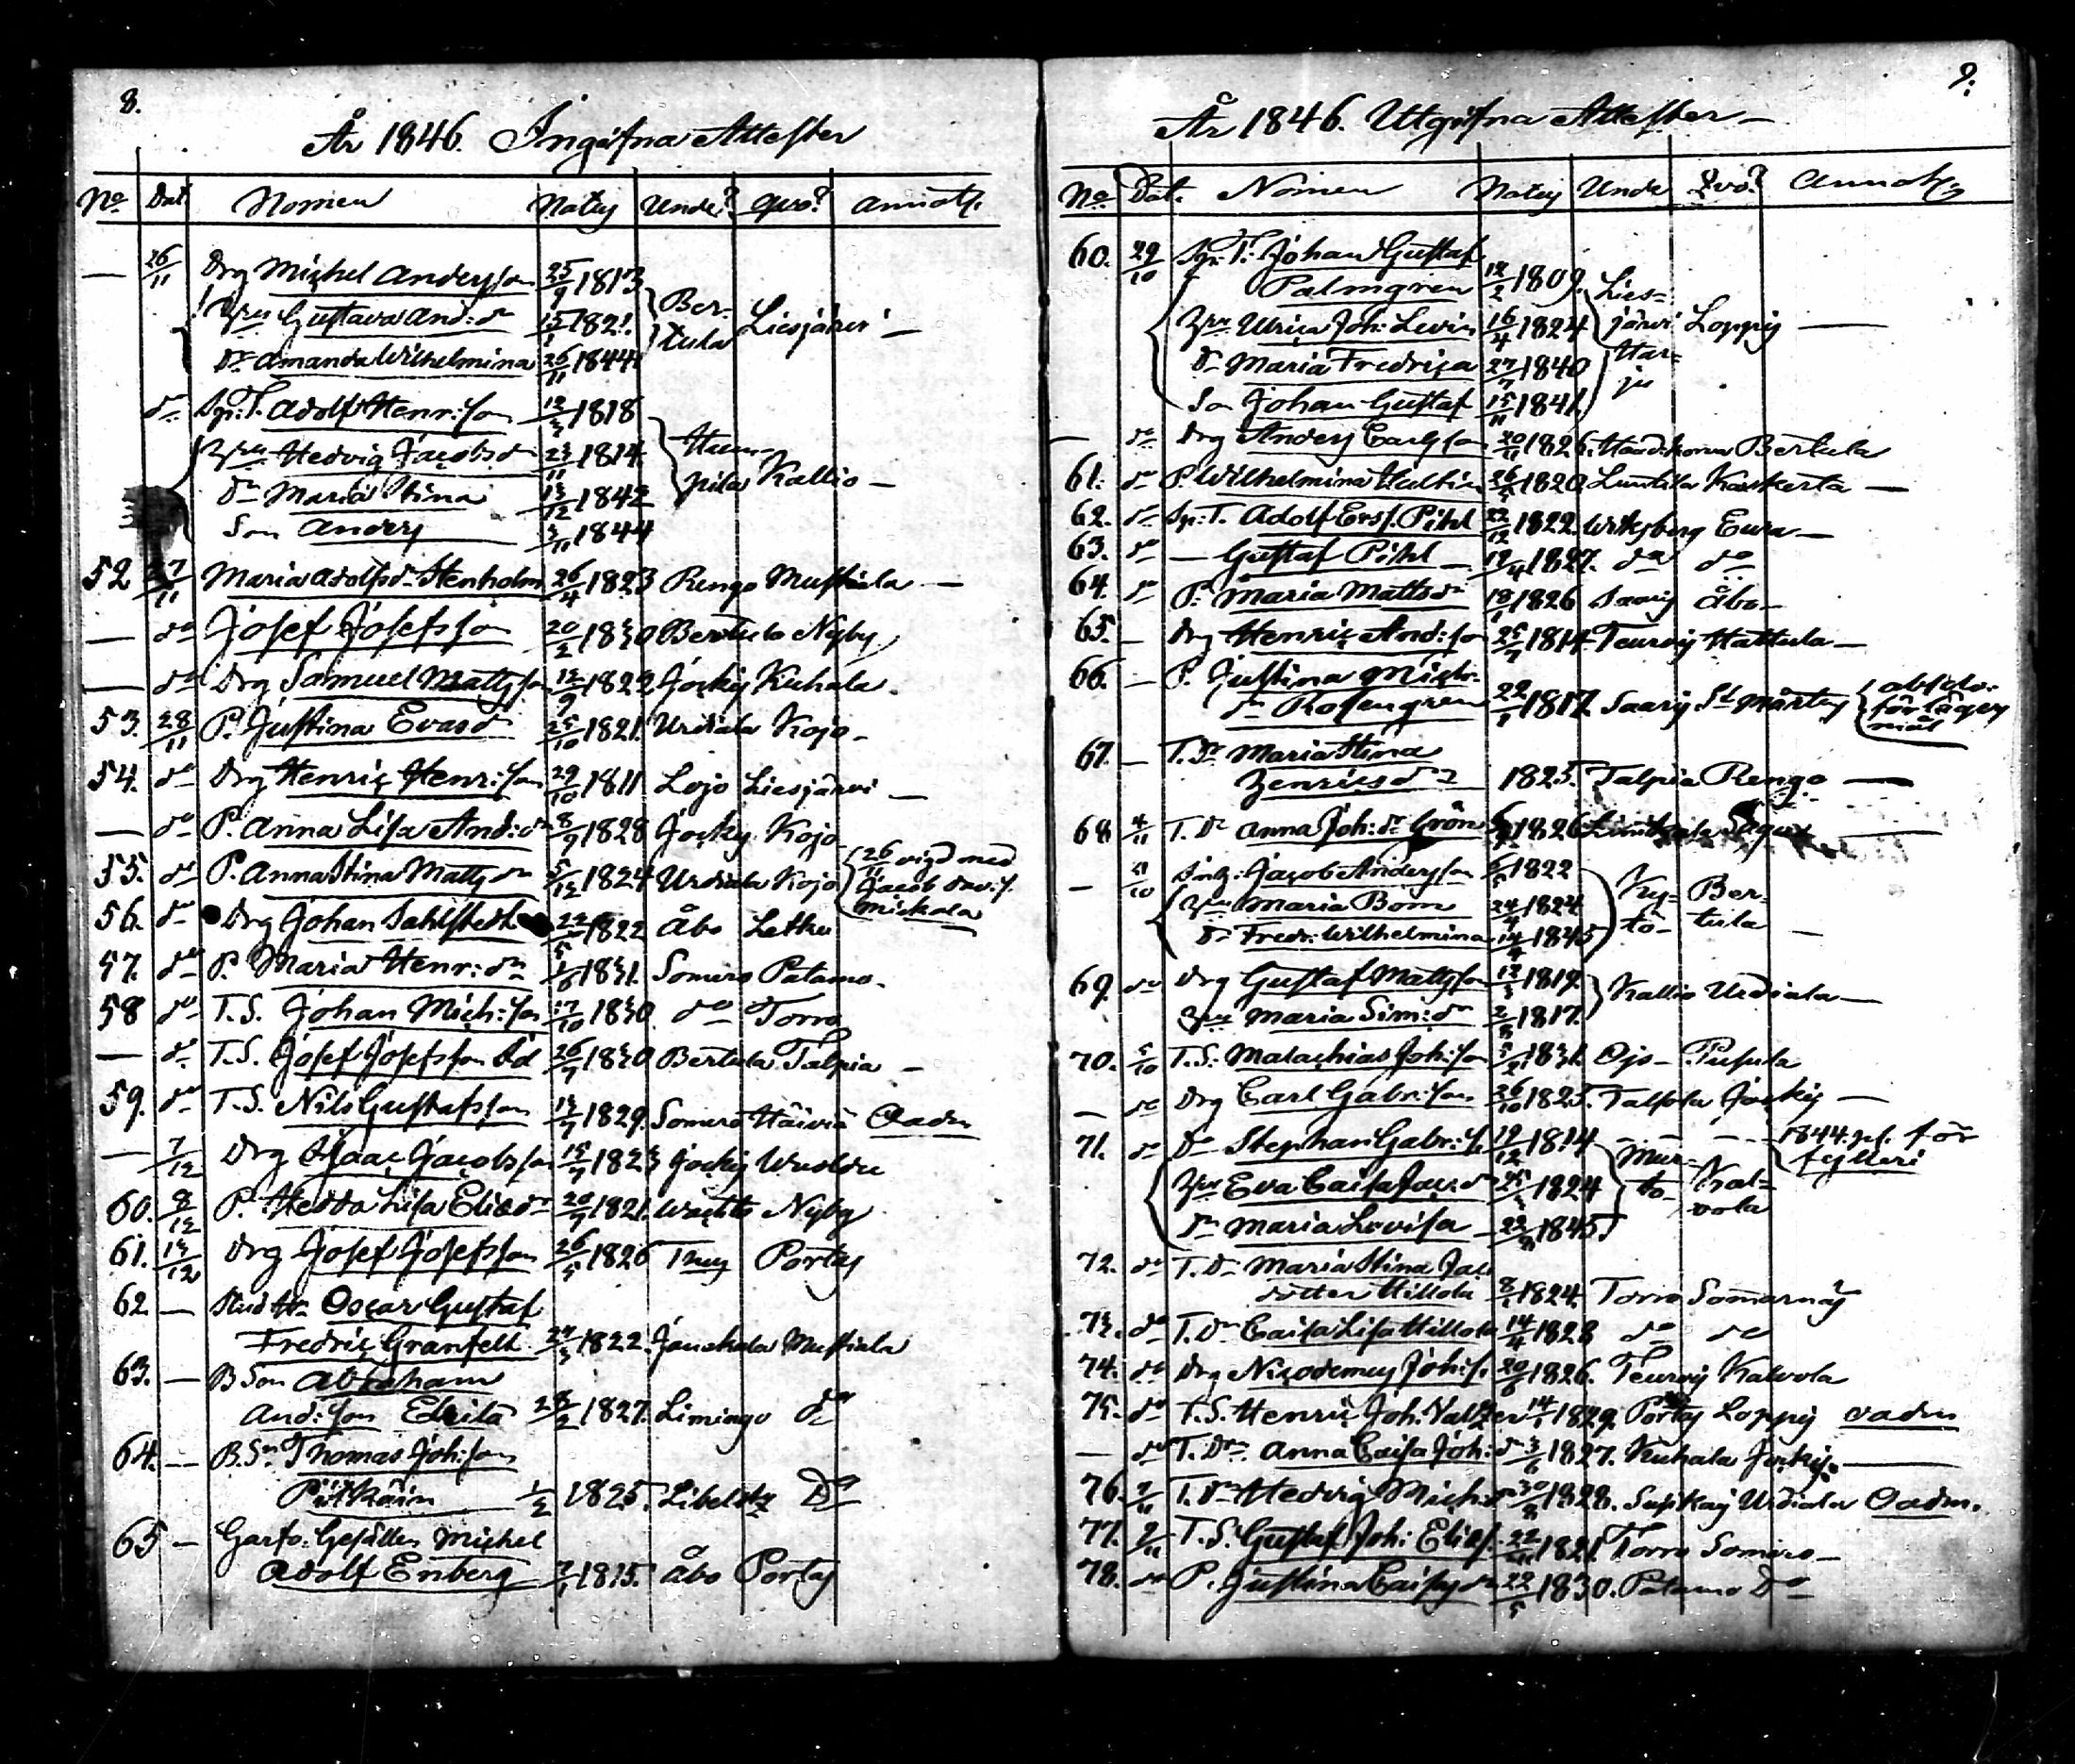 8.
År 1846. Ingifna Attester
No Dat Nomen Natus Unde? quo? annot.
— 26/11 Drg Michel Andersson 25/9 1813
Hru Gustava And:dr 15/1 1821. Ber-
tula Liesjärvi —
Dr Amanda Wilhelmina 26/11 1844
do Sp:T. Adolf Henr:son 12/3 1818
Hru Hedvig Jacobsd 23/11 1814 Hum-
Dr Maria Stina 13/12 1842 pila Kallio —
Son Anders 3/11 1844
52 27/11 Maria Adolfsdr Stenholm 26/4 1823 Rengo Mustiala —
— do Josef Josefsson 20/2 1830 Bertula Nyby
— do Drg Samuel Mattsson 12/9 1822 Jockis Kuhala.
53. 28/11 P. Justina Evasd 25/10 1821. Urdiala Kojo -
54. do Drg Henric Henr:son 29/10 1811 Lojo Liesjärvi —
— do P. Anna Lisa And:dr 8/9 1828 Jockis Kojo
55. do P. Anna Stina Mattsdr 5/12 1824 Urdiala Kojo 26/11 vigd med
Jacob Dav:s.
Mickola
56. do Drg Johan Sahlstedt 22/5 1822 Åbo Letku
57. do P. Maria Henr:dr 1/6 1831. Somero Patamo.
58 do T.S. Johan Mich:son 17/10 1830. do Torro
— do T.S. Josef Josefsson 26/7 1830 Bertula Talpia —
59. do T.S. Nils Gustafsson 13/7 1829. Somero Häiviä Oadm
— 7/12 Drg Isaac Jacobsson 15/7 1823 Jockis
60. 8/12 P. Hedda Lisa Eliædr 20/7 1821. Nyby
61. 13/12 Drg Josef Josefsson 26/5 1826 Portas
62 — Oscar Gustaf
Fredric Granfelt 24/3 1822. Janakala Mustiala
63. — B Son Abraham
And:son 28/2 1827. Limingo do
64. — B.Sn Thomas Joh:son
Pitkäin 1/2 1825. Libelits Do
65 — Garfv: Gesällen Michel
Adolf Enberg 7/1 1815. Åbo Portas
9.
År 1846. Utgifna Attester —
No Dat. Nomen Natus Unde Quo? Annot.
60. 29/10 Sp:T: Johan Gustaf
Palmgren 12/2 1809. Lies-
Hru Ulrica Joh: Levin 16/4 1824 järvi Loppis —
Dr Maria Fredrica 27/7 1840 Har-
ju
Son Johan Gustaf 15/11 1841.
— do Drg Anders Carlsson 20/11 1826. Bertula
61. do P. Wilhelmina 26/5 1820. Luntila Kaskerta —
62. do Sp:T. Adolf Ersf. Pihl 22/12 1822. Witsberg Eura —
63. do — Gustaf Pihl — 12/4 1827. do do
64 do P. Maria Mattsdr 18/1 1826 Saaris Åbo —
65. — Drg Henric And:son 25/7 1814 Teurois Hattula —
66. — P. Justina Mich-
dr Rosengren 22/1 1817. Saaris St Mårtens
67. — T.Dr Maria Stina
Henricsdr 1825. Talpia Rengo —
68 4/11 T.Dr Anna Joh:dr Grön 1826 —
— Jacob Andersson 6/5 1822
Hru Maria Bom 24/4 1824 Ky- Ber-
Dr Fredr: Wilhelmina 14/4 1845 tö- tula —
69. do Drg Gustaf Mattsson 12/3 1819. Kallio Urdiala —
Hru Maria Sim:dr 2/8 1817.
70. 5/10 T.S: Malachias Joh:son 5/2 1831. Ojo — Pusula
— do Drg Carl Gabr:son 26/10 1825. Talpia Jockis —
71. do Do Stephan Gabr:s. 19/12 1814 1844 pl. för
fylleri
Hru Eva Caisa Jac:dr 1824 Mus- Kal-
to- vola
Dr Maria Lovisa — 22/9 1845.
72. do T.Dr Maria Stina Jac
dotter Hillola 8/1 1824. Torro Somarnäs
73. do T.Dr Caisa Lisa Hillola 14/4 1828 do do
74. do Drg Nicodemus Joh:s. 20/6 1826. Teurois Kalvola
75. do T.S. Henric Joh. 1829. Portas Loppis oadm
— do T.Dr. Anna Caisa Joh:dr 3/6 1827. Kuhala Jockis. —
76. 7/11 T.Dr Hedvig Mich:dr 30/8 1828. Urdiala Oadm.
77. 9/11 T.S. Gustaf Joh: Eliæs. 22/11 1821. Torro Somero —
78. do P. Justina Caisasdr 22/5 1830. Patamo Do